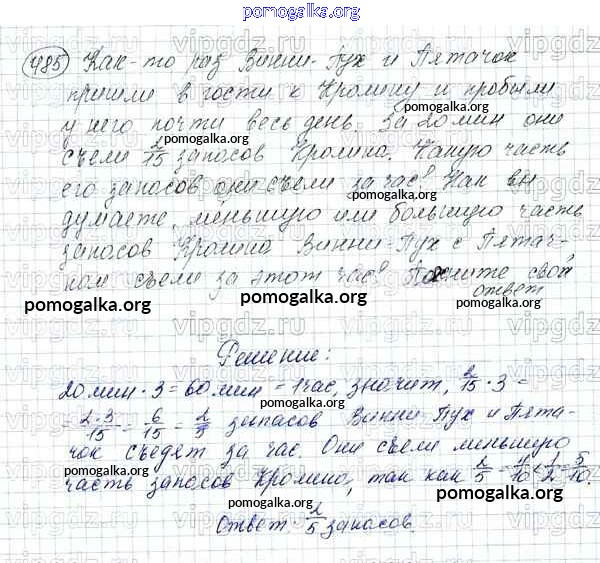 pomogalka.org
485 Как-то раз Винни-Пух и Пятачок
пришли в гости к Кролику и пробыли
у него почти весь день. За 20 мин они
съели 2/15 запасов Кролика. Какую часть
его запасов они съели за час? Как вы
думаете, меньшую или большую часть
запасов Кролика Винни-Пух с Пятач-
ком съели за этот час? Поясните свой
ответ
pomogalka.org pomogalka.org pomogalka.org
Решение:
20 мин · 3 = 60 мин = 1 час, значит, 2/15 · 3 =
= 2·3/15 = 6/15 = 2/5 запасов Винни Пух и Пята-
чок съедят за час. Они съели меньшую
часть запасов Кролика, так как 2/5 = 4/10 < 1/2 = 5/10.
Ответ: 2/5 запасов.
pomogalka.org